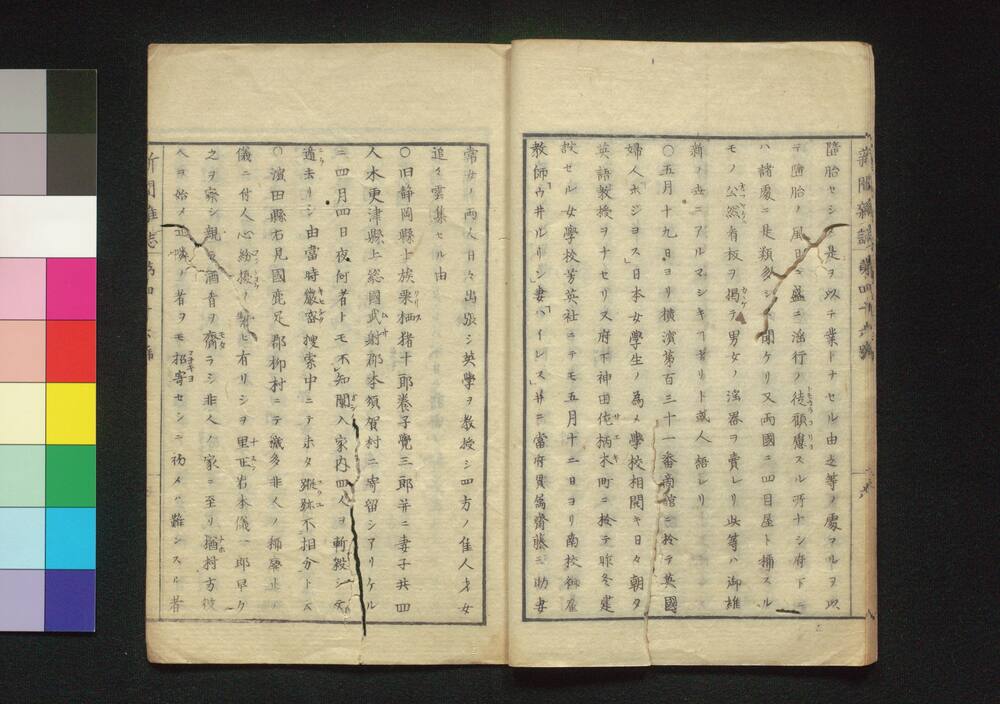 新聞雜誌 第四十六號
墮胎セシメ是ヲ以テ業トナセル由之等ノ處アルヲ以
テ墮胎ノ風日ニ盛ニ淫行ノ徒顧慮スル所ナシ府下ニ
ハ諸處ニ是類多シト聞ケリ又兩國ニ四目屋ト稱スル
モノ公然看板ヲ揭ケ男女ノ淫器ヲ賣レリ此等ハ御維
新ノ世ニアルマシキ
ト或人語レリ
○五月十九日ヨリ橫濱第百三十一番商館ニ於テ英國
婦人「ホジヨス」日本女學生ノ爲メ學校相開キ日々朝夕
英語教授ヲナセリ又府下神田佐柄木町ニ於テ昨冬建
設セル女學校芳英社ニテモ五月十二日ヨリ南校御雇
教師「ウ井ルリンシ」妻「ハイレス」并ニ當府貫屬齋藤
助妻
常女ノ兩人日々出張シ英學ヲ教授シ四方ノ佳人才女
追々雲集セル由
○旧靜岡縣士族栗栖猪十郎養子覺三郎并ニ妻子共四
人木更津縣上総國武射郡本須賀村ニ寄留シアリケル
ニ四月四日夜何者トモ不知闖入家內四人ヲ斬殺シ
逃去リシ由當時嚴密搜索中ニテホタ蹤跡不相分ト云
○濱田縣石見國鹿足郡柳村ニテ穢多非人ノ稱廢止ノ
儀ニ付人心紛擾ノ
ヒ有リシヲ里正岩本儀一郎早ク
之ヲ察シ親ラ酒肴ヲ齎ラシ非人ノ家ニ至リ猶村方彼
人ヲ始メ近隣ノ者ヲモ招寄セシニ初メハ難シスル者
新聞雜誌 第四十六號